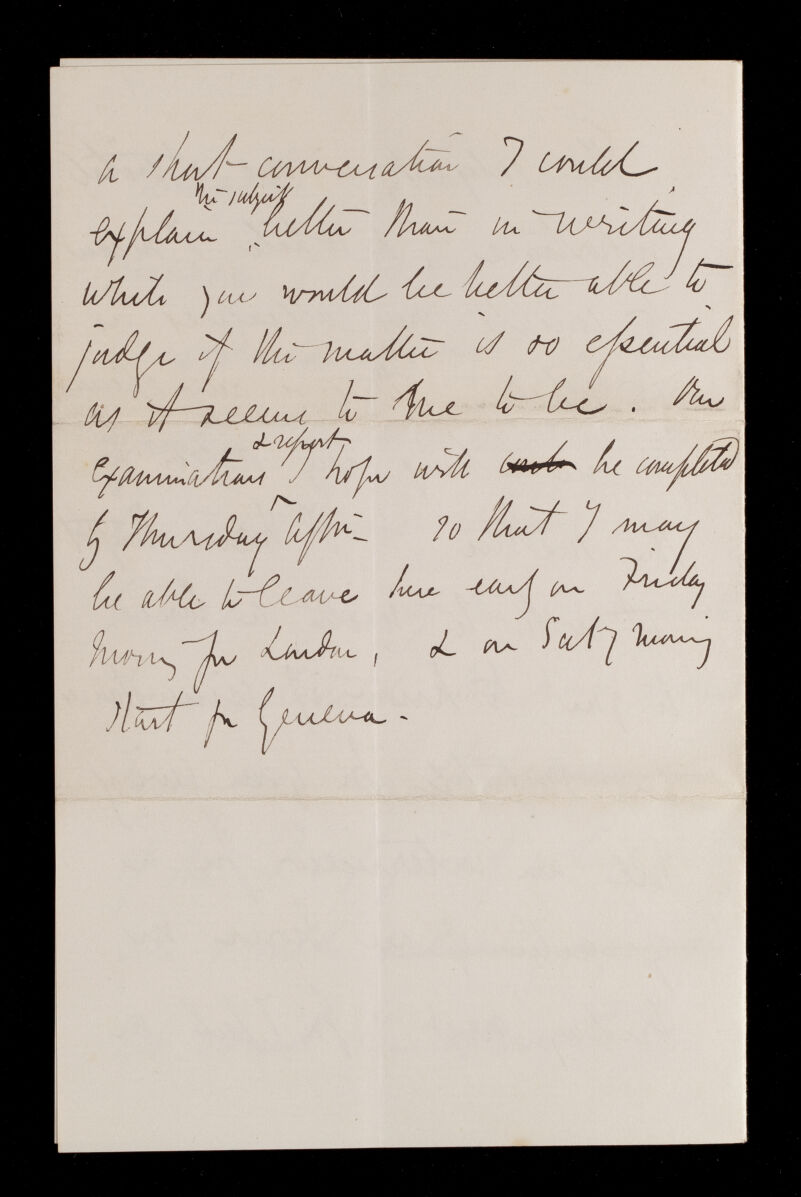 a short conversation I could
the subject
explain better than in writing
while you would be better able to
judge if the matter is so essential
as it seems to me to be. Our
& report
examinations I hope will be completed
by Thursday Aftn- so that I may
be able to leave here early on Friday
Morng for London, & on Saty Morning
Start for Geneva-